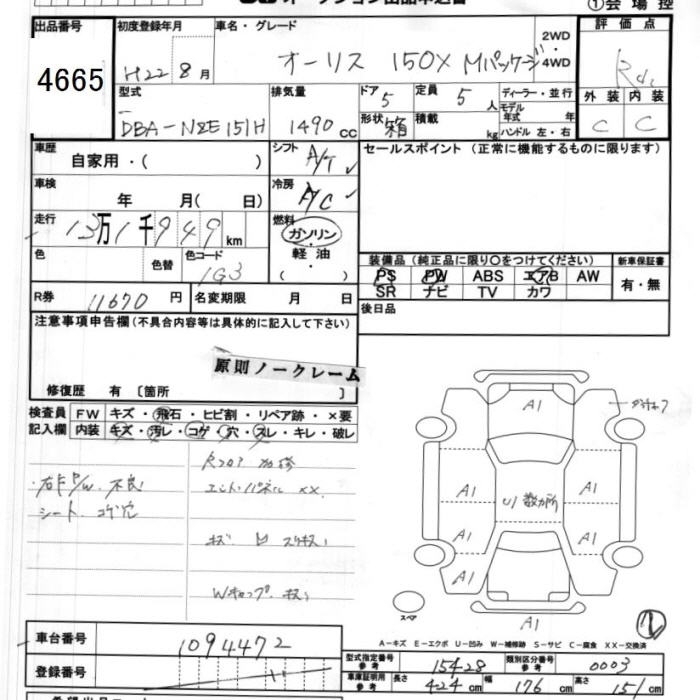 ①会場控
出品番号
4665
初度登録年月
H22年8月
車名・グレード
オーリス 150X Mパッケージ
2WD
・
4WD
評価点
外装 内装
C C
型式
DBA-NZE151H
排気量
1490cc
ドア 5
定員 5人
形状 箱
積載 kg
ディーラー・並行
モデル年式 年式
ハンドル 左・右
車歴
自家用・( )
シフト A/T
冷房 A/C
セールスポイント(正常に機能するものに限ります)
車検
年 月( 日)
走行
13万1千949km
燃料
ガソリン
・
軽油
・
( )
色
色替
色コード
1G3
装備品(純正品に限り○をつけてください)
PS PW ABS エアB AW
SR ナビ TV カワ
新車保証書
有・無
R券 11670円
名変期限 月 日
後日品
注意事項申告欄(不具合内容等は具体的に記入して下さい)
原則ノークレーム
修復歴 有〔箇所 〕
検査員記入欄
FW キズ・飛石・ヒビ割・リペア跡・×要
内装 キズ・汚レ・コゲ・穴・スレ・キレ・破レ
Rフロア 加修
右F P/W 不良
エンドパネル XX
シート コゲ穴
A1
A1
A1
U1 散ガ所
A1
A1
A1
A1
A1
スペア
A-キズ E-エクボ U-凹み W-補修跡 S-サビ C-腐食 XX-交換済
車台番号 1094472
登録番号
型式指定番号 参考 15428
類別区分番号 参考 0003
車庫証明用 参考 長さ 424cm 幅 176cm 高さ 151cm